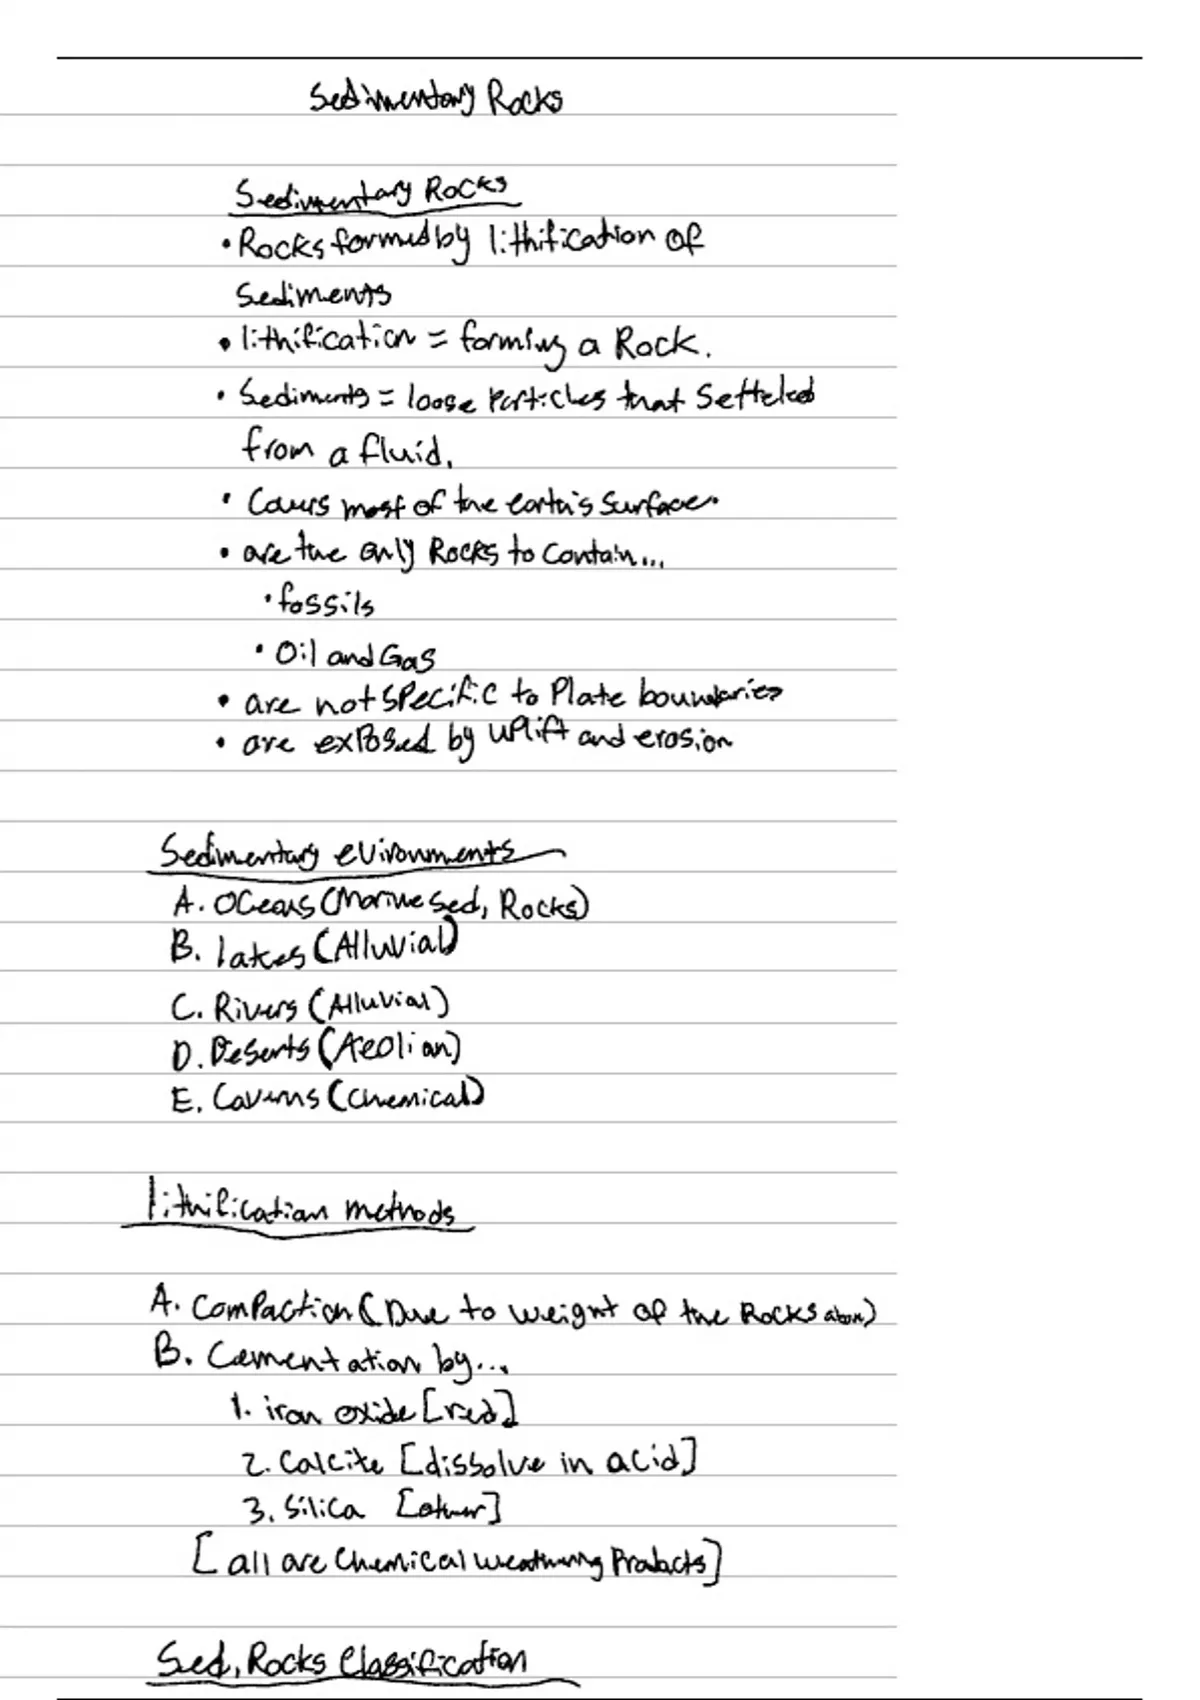 Sedimentary Rocks
Sedimentary Rocks
• Rocks formed by lithification of
Sediments
• lithification = forming a Rock.
• Sediments = loose particles that Setteled
from a fluid.
• Covers most of the earth's surface.
• are the only Rocks to contain...
• fossils
• Oil and Gas
• are not specific to Plate boundaries
• are exposed by uplift and erosion
Sedimentary evironments
A. Oceans (Marine Sed, Rocks)
B. lakes (Alluvial)
C. Rivers (Alluvial)
D. Deserts (Aeolian)
E. Caverns (chemical)
lithification methods
A. Compaction (Due to weight of the Rocks above)
B. Cementation by...
1. iron oxide [red]
2. Calcite [dissolve in acid]
3. Silica [other]
[all are Chemical weathering Products]
Sed, Rocks Classification